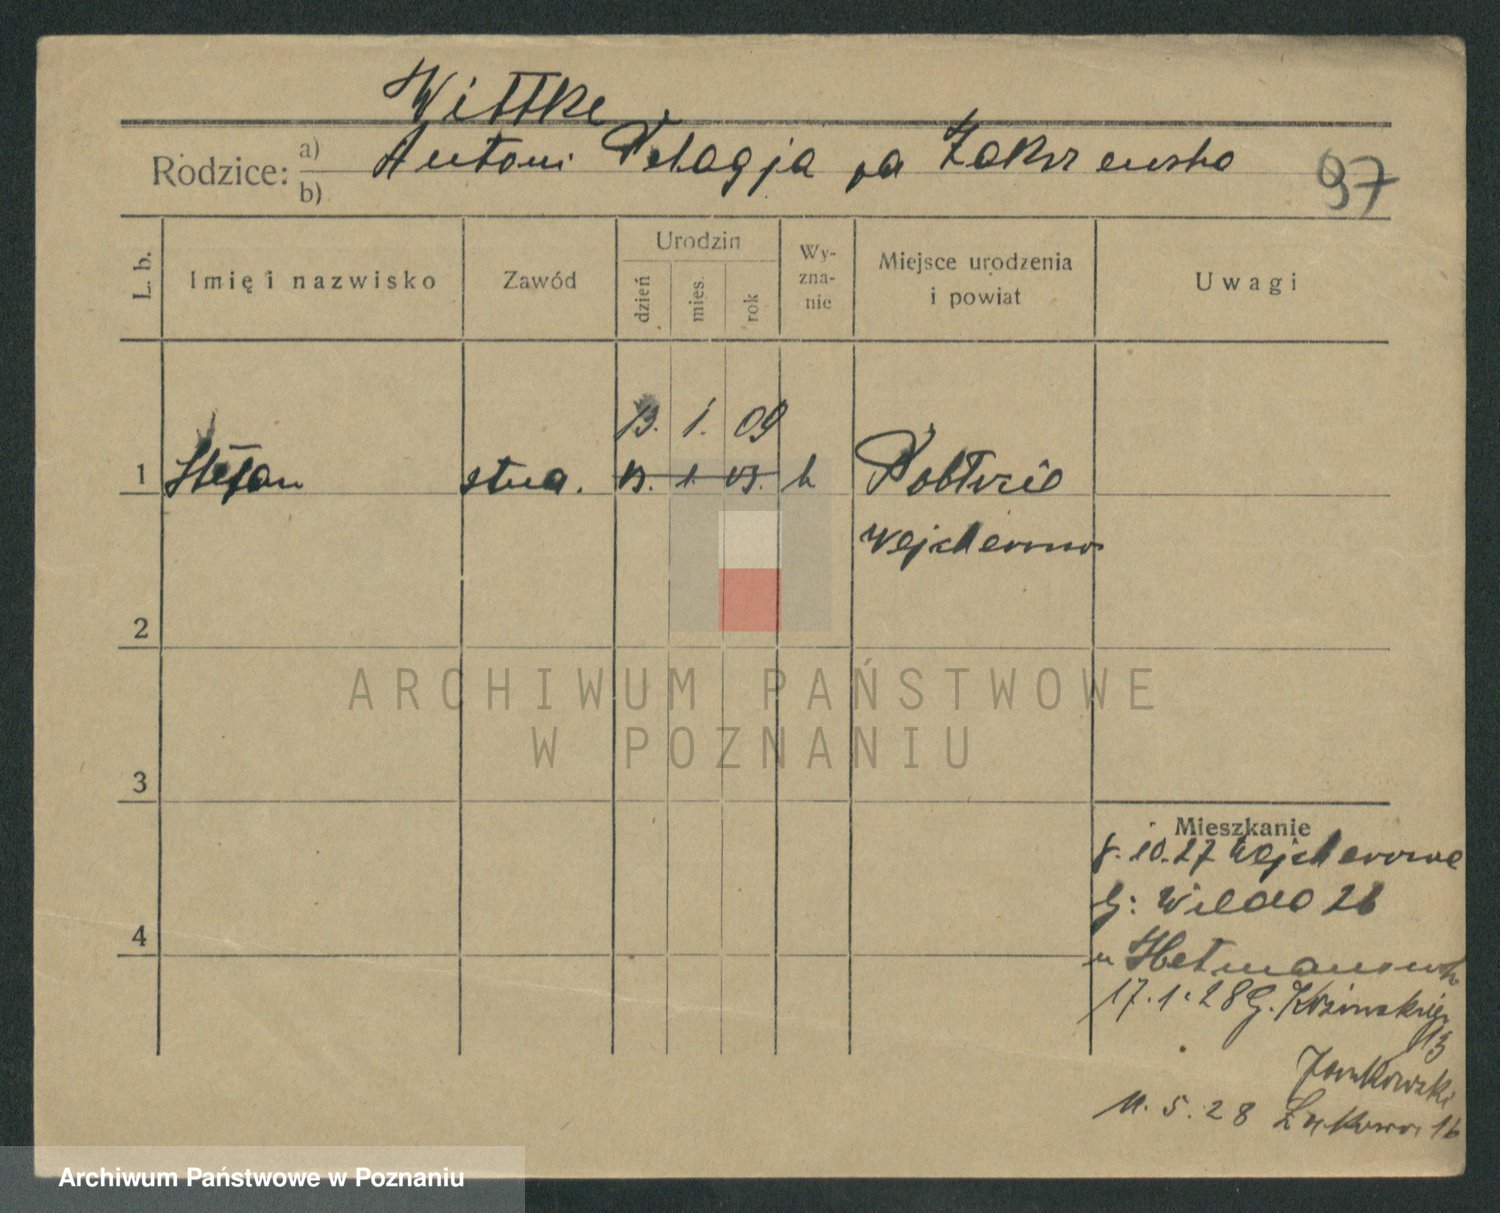 Wittke
Rodzice: a) Antoni Pelagja pa Zakrzewska
b)
97
L. b. Imię i nazwisko Zawód Urodzin Wy-zna-nie Miejsce urodzenia i powiat Uwagi
dzień mies. rok
13. 1. 09
1 Stefan stud. 13. 1. 03. k
wejherowo
2
ARCHIWUM PAŃSTWOWE
W POZNANIU
3
Mieszkanie
8.10.27 Wejherowo
G: Wilda 26
u Hetmanowska
4
17.1.28 G.
13
11.5.28
Archiwum Państwowe w Poznaniu